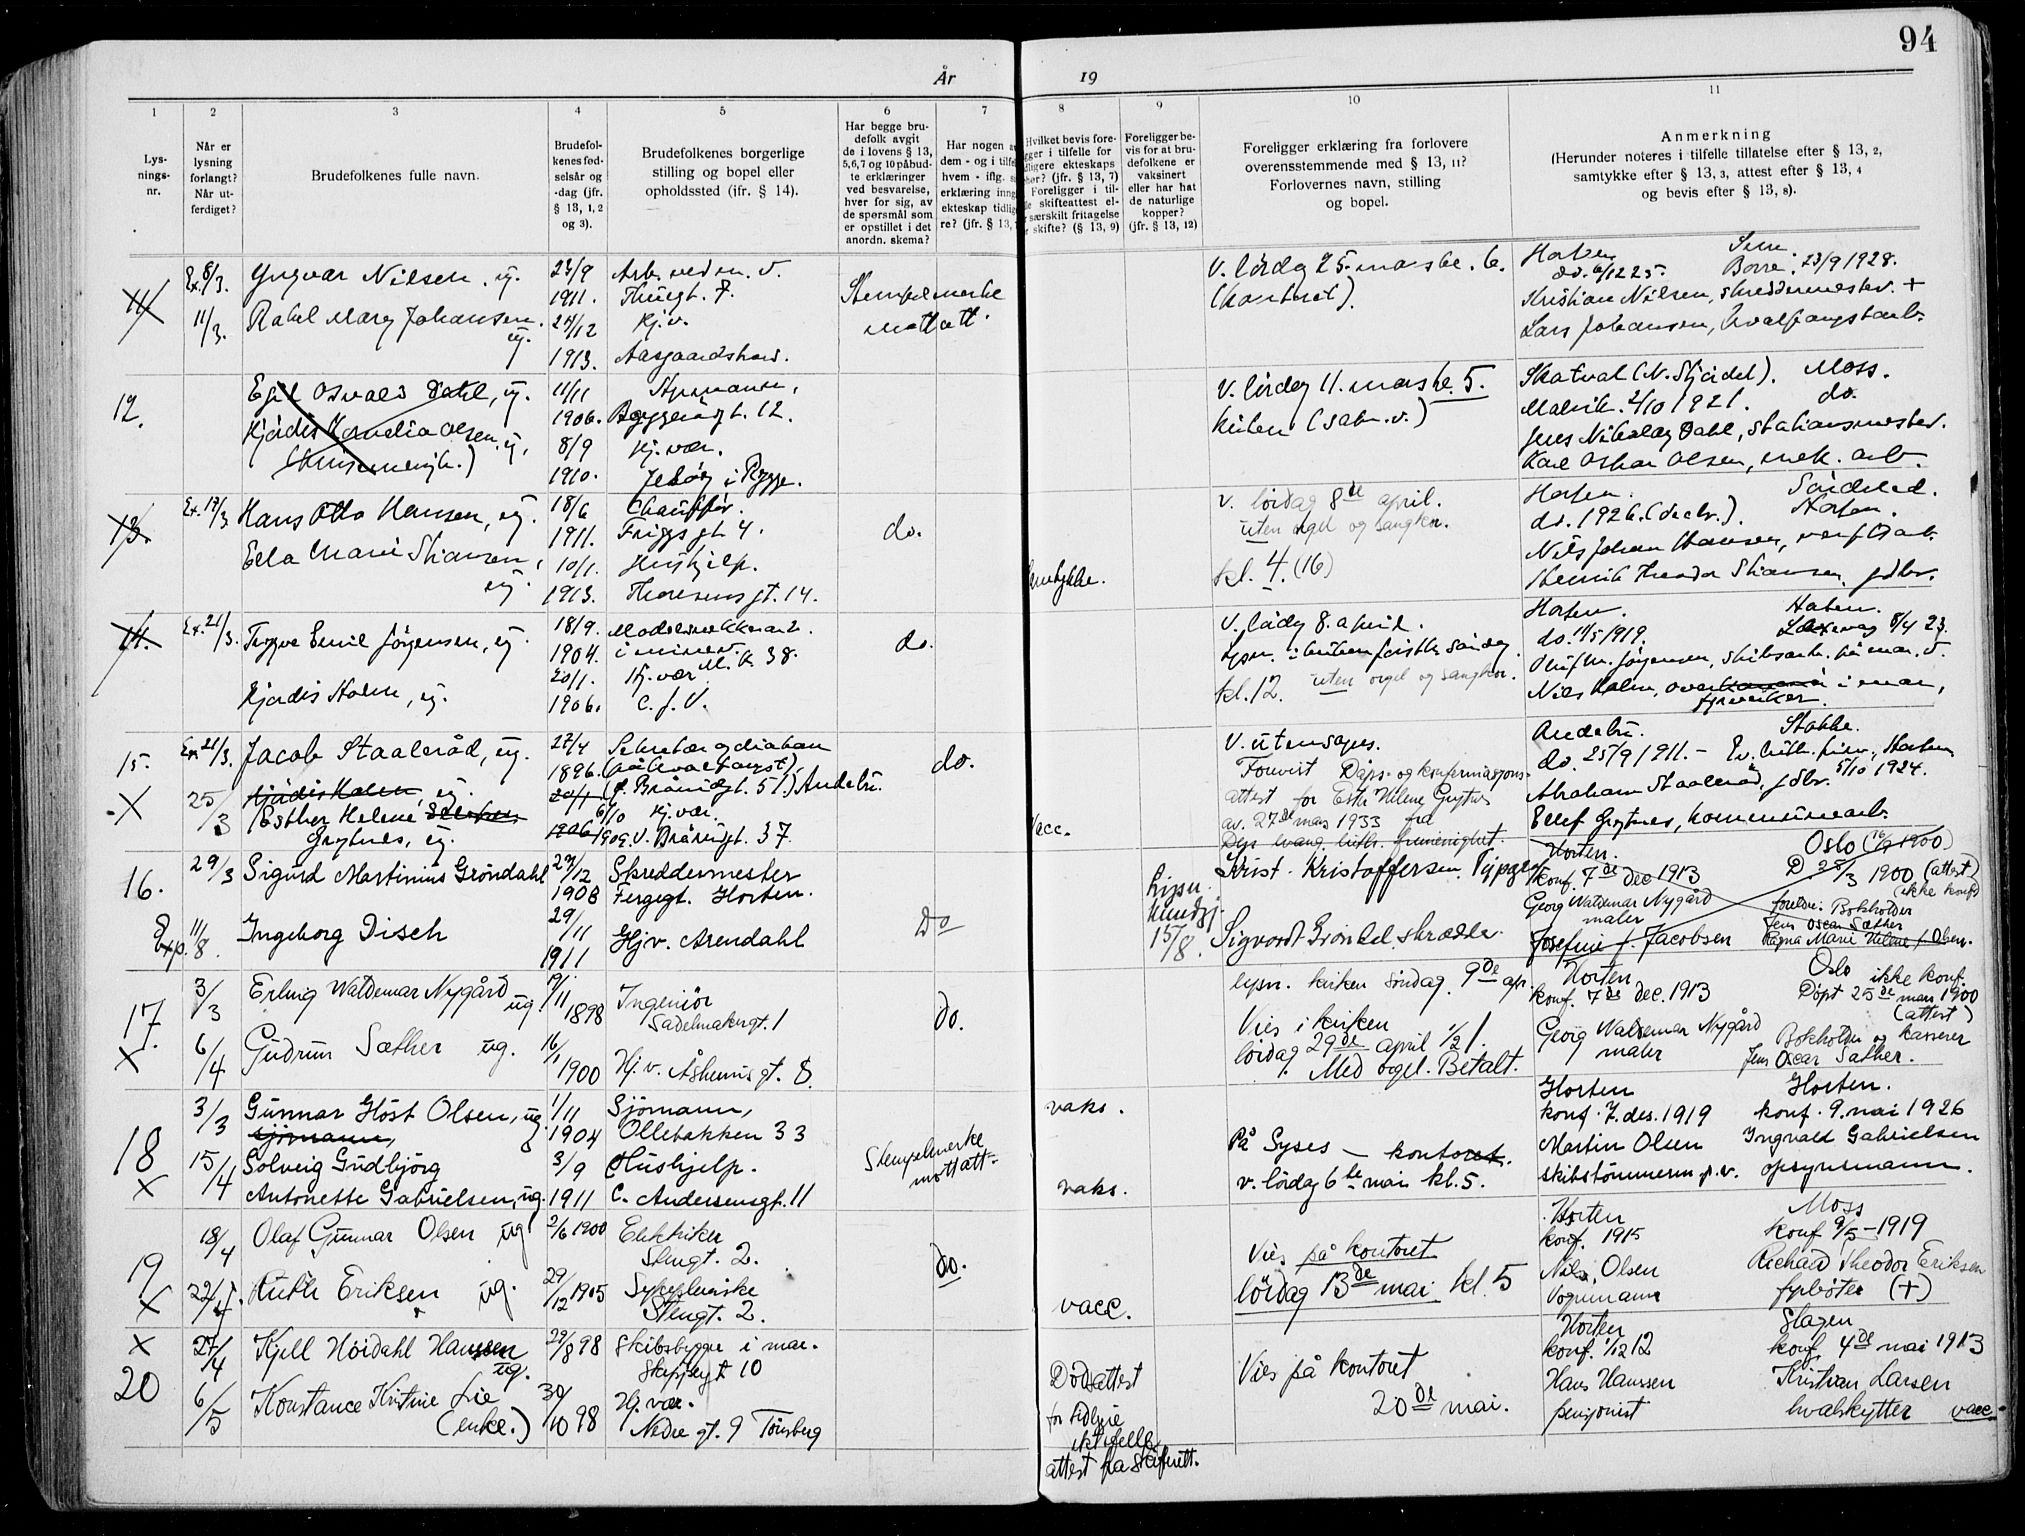 94
År 19
1 2 3 4 5 6 7 8 9 10 11
Lys-
nings-
nr.
Når er
lysning
forlangt?
Når ut-
ferdiget?
Brudefolkenes fulle navn.
Brudefol-
kenes fød-
selsår og
-dag (jfr.
§ 13, 1, 2
og 3).
Brudefolkenes borgerlige
stilling og bopel eller
opholdssted (ifr. § 14).
Har begge bru-
defolk avgit
de i lovens § 13,
5,6,7 og 10 påbud-
te erklæringer
ved besvarelse,
hver for sig, av
de spørsmål som
er opstillet i det
anordn. skema?
Har nogen a
dem - og i tilfe
hvem - iflg. s
erklæring inng
ekteskap tidlig
re? (jfr. § 13,
Hvilket bevis fore-
gger i tilfelle for
dligere ekteskaps
hør? (jfr. § 13, 7)
Foreligger i til-
le skifteattest el-
r særskilt fritagelse
r skifte? (§ 13, 9)
Foreligger be-
vis for at bru-
defolkene er
vaksinert
eller har hat
de naturlige
kopper?
(jfr. § 13, 12)
Foreligger erklæring fra forlovere
overensstemmende med § 13, 11?
Forlovernes navn, stilling
og bopel.
Anmerkning
(Herunder noteres i tilfelle tillatelse efter § 13, 2,
samtykke efter § 13, 3, attest efter § 13, 4
og bevis efter § 13, 8).
11
Ex. 8/3.
11/3.
Yngvar Nilsen, ug.
Rakel Mary Johansen.
ug.
23/9
1911.
24/12
1913.
Arb. ved m. v.
Thuegt. 7.
Hj.v.
Aasgaardstrand.
Stempelmerke
mottatt.
V. lørdag 25. mars kl. 6.
(kontoret).
Horten Sem
do. 6/12 25. Borre, 23/9 1928.
Kristian Nilsen, skreddermester. +
Lars Johansen, hvalfangstarb.
12.
Egil Osvald Dahl, ug.
Hjørdis Kornelia Olsen, ug.
11/11
1906.
8/9
1910.
Styrmann,
Byggerigt. 12.
Hj. vær.
Jeløy i Rygge.
V. lørdag 11. mars kl. 5.
kirken (salm. v.)
Skatval (N. Stjørdal). Moss.
Malvik. 2/10 1921. do.
Jens Nikolay Dahl, stationsmester.
Karl Oskar Olsen, mek. arb.
13.
Ex. 17/3
Hans Otto Hansen, ug.
Ella Marie Stiansen,
ug.
18/6
1911.
10/1.
1913.
Chauffør.
Friggs gt. 4.
Hushjelp.
Thoresens gt. 14.
do.
V. lørdag 8de april.
uten orgel og sangkor.
kl. 4. (16)
Horten. Søndeled.
do. 1926. (decbr.). Horten.
Nils Johan Hansen, verftsarb.
Henrik Theodor Stiansen, gdbr.
14.
Ex. 21/3.
Trygve Emil Jørgensen, ug.
Hjørdis Holm, ug.
18/9.
1904.
20/1.
1906.
Modelsnekkerarb.
i minev.
M. K 38.
Hj. vær
C. J. V.
do.
V. lørdg 8. april.
kl. 12. uten orgel og sangkor.
Horten. Horten.
do. 11/5 1919. Laksevag 8/4 23.
Oluf M. Jørgensen, skibsarb. på mar. v.
Nils Holm, over i mar,
fyrvokter.
15.
X
Ex. 21/3.
25/3
Jacob Staaleråd, ug.
Hjørdis Holm, ug.
Esther Helene
Grytnes, ug.
27/4
1896.
20/1
6/10
1906 1909.
Sekretær og diakon
(på hvalfangst),
(f. Bråvigt. 51.) Andebu.
Hj. vær.
V. Bråvigt. 37.
do.
Vacc.
V. utensogns.
Forevist Dåps- og konfirmasjons-
attest for Esth. Helene Grytnes
av. 27de mars 1933 fra
Den evang. luth. frimenighet.
Andebu. Stokke.
do. 25/9 1911. – Ev. luth. frim., Horten
5/10 1924.
Abraham Staaleråd, gdbr.
Ellef Grytnes, kommunearb.
16.
29/3
Exp. 11/8.
Sigurd Martinius Grøndahl
Ingeborg Disch
27/12
1908
29/11
1911
Skreddermester
Fergegt. Horten.
Hjv. Arendahl
Do
15/8.
Krist. Kristoffersen.
Sigvardt Grøndal skredder.
Horten. Oslo (16/1 1900)
konf. 7de dec 1913 D. 25/3 1900 (attest)
(ikke konf)
Georg Waldemar Nygård
maler
foreldre: Bokholder
Jens Oscar Sæther
Josefine f. Jacobsen Ragna Marie Helene f. Olsen.
17.
X
3/3
6/4
Erling Waldemar Nygård ug.
Gudrun Sæther ug.
19/11
1898
16/1
1900
Ingeniør
Sadelmakergt. 1
Hj. v. Åsheims gt. 8.
do.
lysn. kirken søndag 9de apr.
Vies i kirken
lørdag 29de april 1/2 1.
Med orgel. Betalt.
Horten Oslo ikke konf.
konf. 7de dec. 1913 Døpt 25de mars 1900
(attest)
Georg Waldemar Nygård Bokholder og kasserer
maler Jens Oscar Sæther.
18
X
3/3
15/4
Gunnar Høst Olsen, ug.
sjømann,
Solveig Gudbjørg
Antonette Gabrielsen, ug.
1/11
1904
3/9
1911
Sjømann,
Ollebakken 33
Hushjelp.
C. Andersensgt. 11
Stempelmerke
mottatt.
vaks.
vaks.
På Syses – kontoret.
v. lørdag 6te mai kl. 5.
Horten Horten.
konf. 7. des. 1919 konf. 9. mai 1926
Martin Olsen Ingvald Gabrielsen
skibstømmerm. p. v. opsynsmann.
19
X
18/4
22/4.
Olaf Gunnar Olsen ug
Ruth Eriksen ug.
2/6 1900
29/12 1905
Elektriker
Stengt. 2.
Sykepleierske
Stengt. 2.
do.
vacc.
Vies på kontoret
lørdag 13de mai kl. 5
Horten Moss
konf. 1915 konf 9/5 – 1919
Nils, Olsen Richard Theodor Eriksen
Vognmann fyrbøter (+)
X
20
27/4
6/5
Kjell Høidahl Hanssen
ug.
Konstance Kristine Lie
(enke.)
29/8 98
30/10 98
Skibsbygger i mar.
Skippergt 10
Hj. vær.
Nedre gt. 9 Tønsberg
Dødsattest
for tidligere
ektefelle
attest fra skifterett.
Vies på kontoret
20de mai.
Horten Slagen
konf. 1/12 12 konf. 4de mai 1913
Hans Hanssen Kristian Larsen
pensjonist hvalskytter vacc.